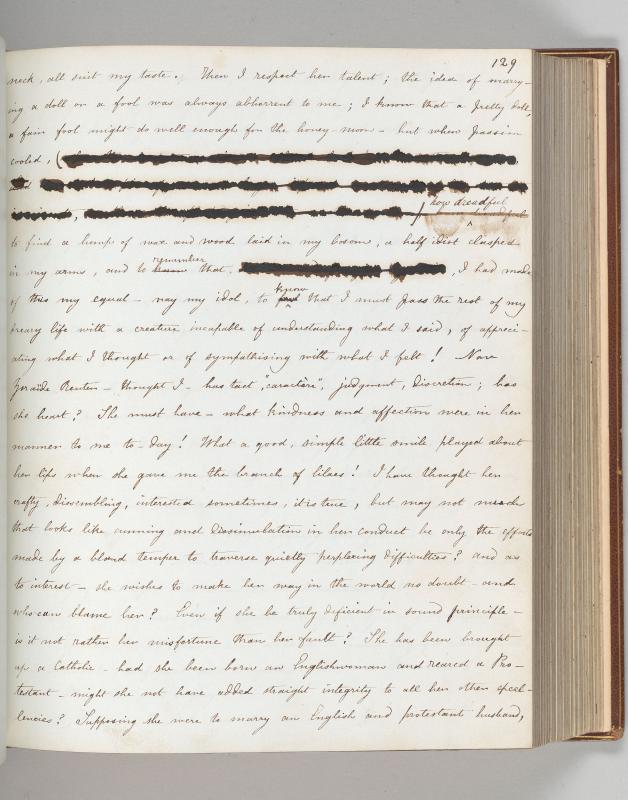 129
neck, all suit my taste. Then I respect her talent; the idea of marry-
ing a doll or a fool was always abhorrent to me; I know that a pretty doll,
a fair fool might do well enough for the honey-moon – but when passion
cooled, (
how dreadful
to find a lump of wax and wood laid in my bosom, a half idiot clasped
remember
in my arms, and to that, I had made
know
of this my equal – nay my idol, to that I must pass the rest of my
dreary life with a creature incapable of understanding what I said, of appreci-
ating what I thought or of sympathising with what I felt! Now
Zoraïde Reuter – thought I – has tact, "caractère", judgment, discretion; has
she heart? She must have – what kindness and affection were in her
manner to me to-day! What a good, simple little smile played about
her lips when she gave me the branch of lilacs! I have thought her
crafty, dissembling, interested sometimes, it is true, but may not much
that looks like cunning and dissimulation in her conduct be only the efforts
made by a bland temper to traverse quietly perplexing difficulties? and as
to interest – she wishes to make her way in the world no doubt – and
who can blame her? Even if she be truly deficient in sound principle –
is it not rather her misfortune than her fault? She has been brought
up a Catholic – had she been born an Englishwoman and reared a Pro-
testant – might she not have added straight integrity to all her other excel-
lencies? Supposing she were to marry an English and protestant husband,